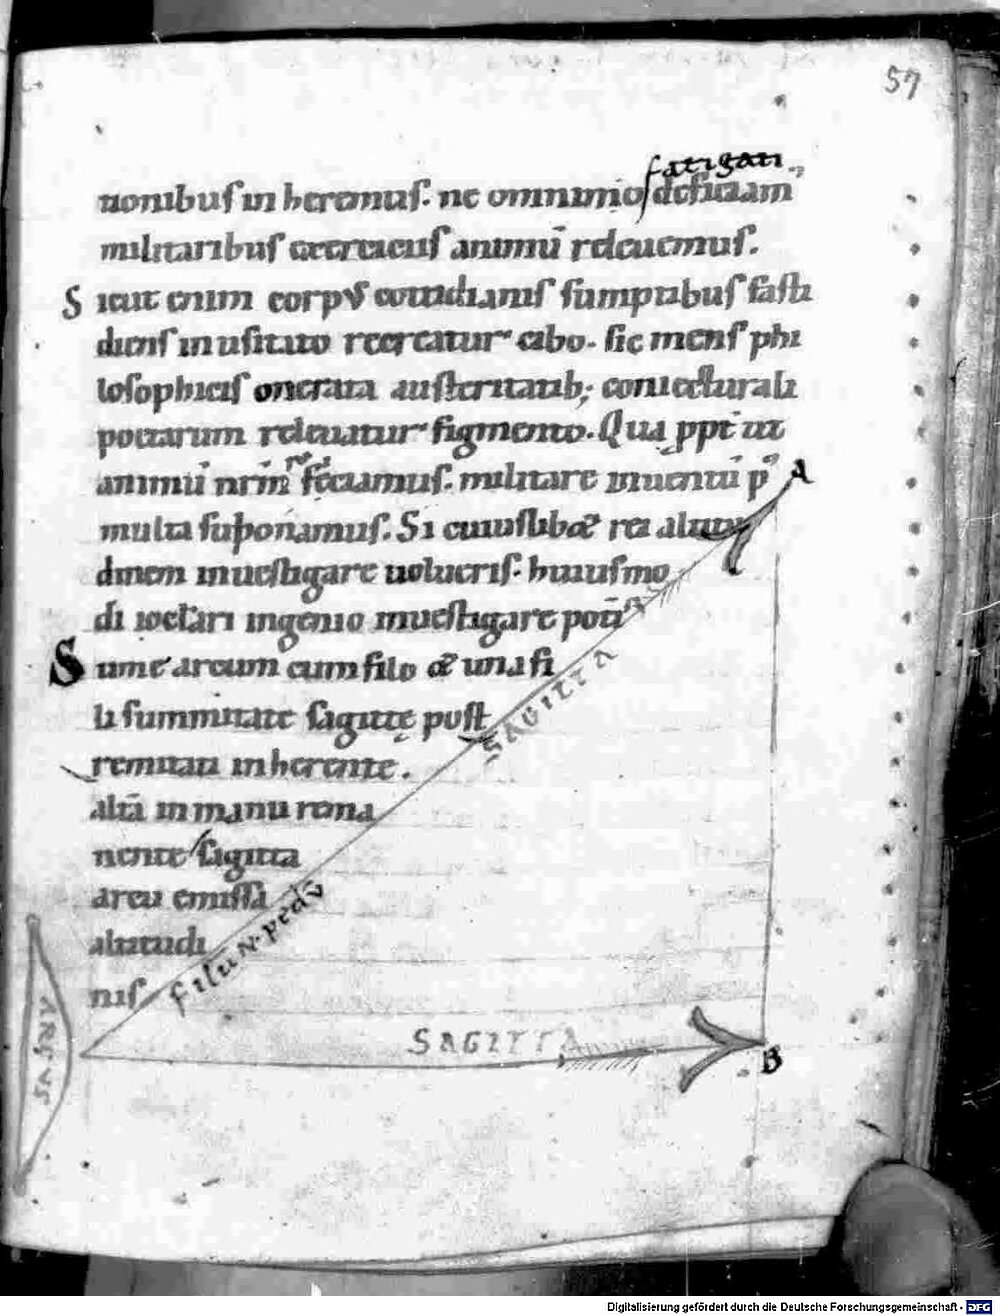 57
fatigati
tionibus in heremus. ne omnimo deficiam
militaribus exerciciis animū releuemus.
Sicut enim corpus cottidianis sumptibus fasti
diens inusitato recreatur cibo. sic mens phi
losophicis onerata austeritatib; coniecturali
poetarum releuatur figmento. Qua ppt ut
animū nrm̄ refociamus. militare inuentū p
multa suponamus. Si cuiuslibet rei altitu
dinem inuestigare uolueris. huiusmo
di ioclari ingenio inuestigare poti
Sume arcum cum filo et una fi
li summitate sagittę post
remitati inherente.
altā in manu rema
nente sagitta
arcu emissa
altitudi
nis
A
SAGITTA
filum pedū
SAGITTA
B
ARCVS
Digitalisierung gefördert durch die Deutsche Forschungsgemeinschaft - DFG